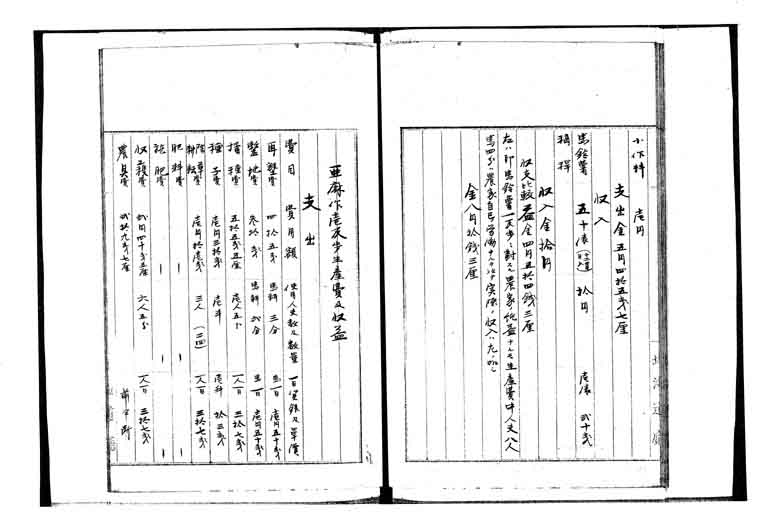 小作料 壱円
支出金五円四拾五銭七厘
収入
馬鈴薯 五十俵 拾円 壱俵 弐十銭
収入金拾円
収支比較益金四円五拾四銭三厘
左ハ即馬鈴薯一反歩ニ対スル農家ノ純益ナルモ生産費中人夫八人
馬四分ハ農家自己ノ労働ナルヲ以テ実際ノ収入ハ左ノ如シ
金八円拾銭三厘
亜麻作壱反歩生産費及収益
支出
費目 費用額 使用人夫数及数量 一日賃銭及単価
再墾費 四拾五銭 馬耕 三分 馬一日 壱円五十銭
整地費 参拾銭 馬耕 弐分 馬一日 壱円五十銭
播種費 五拾五銭五厘 壱人五分 一人一日 三拾七銭
種子費 壱円三拾銭 壱斗 壱升 拾三銭
除草費 耕耘費 壱円拾壱銭 三人 一人一日 三拾七銭
肥料費 ー ー ー
施肥費 ー ー ー
収穫費 弐円四十銭五厘 六人五分 一人一日 三拾七銭
農具費 弐拾九銭七厘
北海道庁